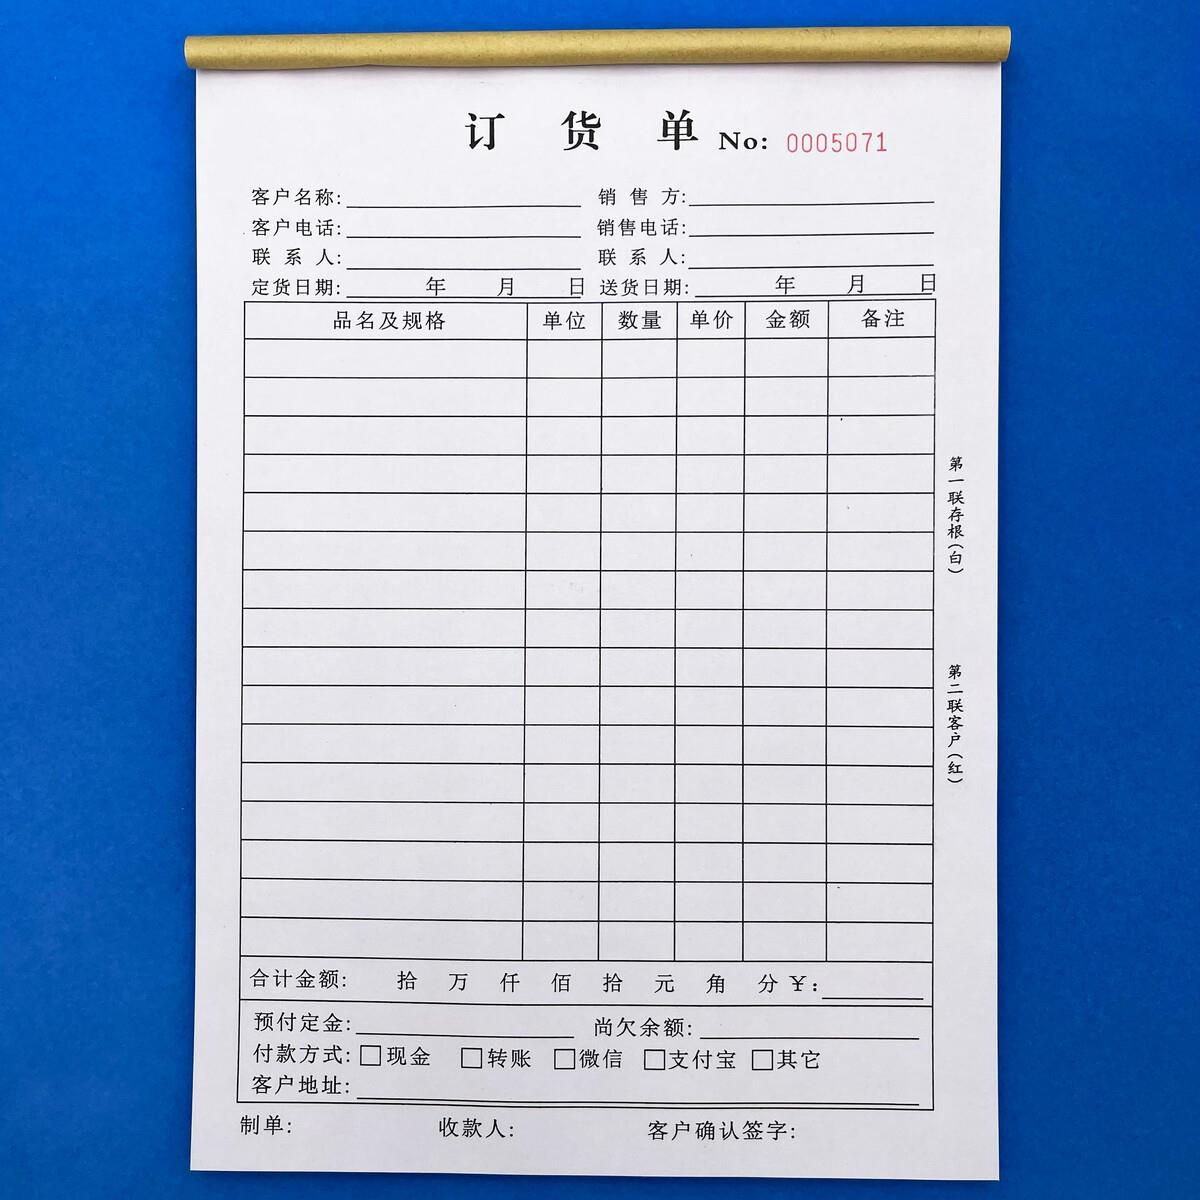 订货单 No: 0005071
客户名称: 销售方:
客户电话: 销售电话:
联系人: 联系人:
定货日期: 年 月 日 送货日期: 年 月 日
品名及规格 单位 数量 单价 金额 备注
第一联存根(白)
第二联客户(红)
合计金额: 拾 万 仟 佰 拾 元 角 分 ¥:
预付定金: 尚欠余额:
付款方式: □现金 □转账 □微信 □支付宝 □其它
客户地址:
制单: 收款人: 客户确认签字: